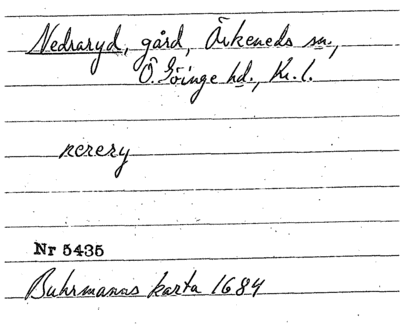 Nedraryd, gård, Örkeneds sn.,
Ö. Göinge hd., Kr. l.
rerery
Nr 5435
Buhrmanns karta 1684